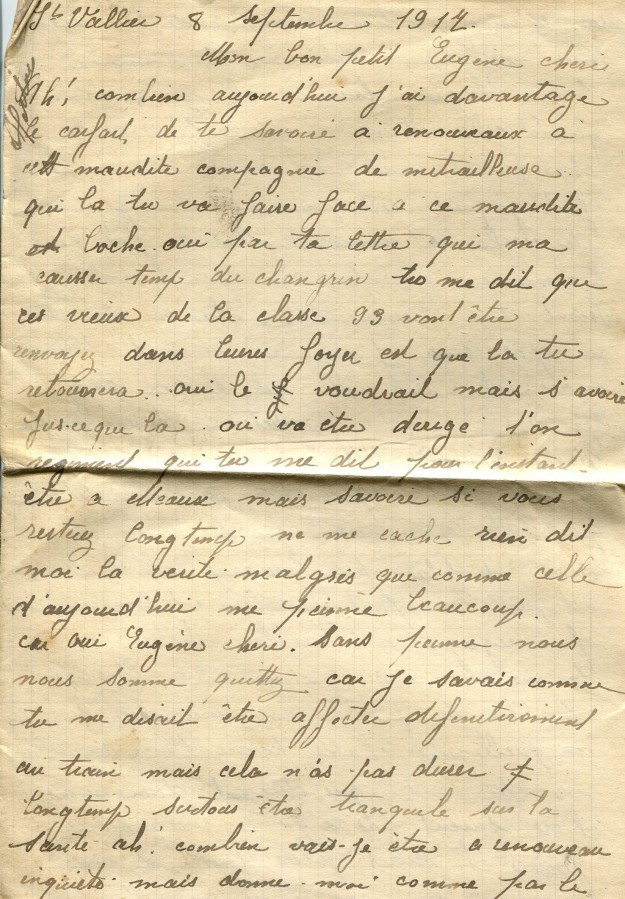 St Vallier 8 septembre 1917.
Mon bon petit Eugène cheri
Ah! combien aujourd'hui j'ai davantage
le cafart de te savoire a renouveaux à
cett maudite compagnie de mitrailleuse
qui la tu va faire face a ce maudite
boche. oui par ta lettre qui ma
causser temp du changrin tu me dit que
ces vieux de la classe 93 vont être
renvoyez dans leures foyer est que la tu
retournera.. oui le voudrait mais s'avoire
jus-ce qui la ou va être dirigé ton
regiment qui tu me dit pour l'instant
être a Meaux mais savoire si vous
restiez longtemp ne me cache rien dit
moi la verite malgrés que comme celle
d'aujourd'hui me peinne beaucoup.
car oui Eugène cheri. Sans peinne nous
nous somme quittez car je savais comme
tu me disait être affecter definitivement
au train mais cela n'as pas durer
longtemp surtous être tranquile sur ta
santé ah! combien vais-je être a renouveau
inquiète mais donne-moi comme par le